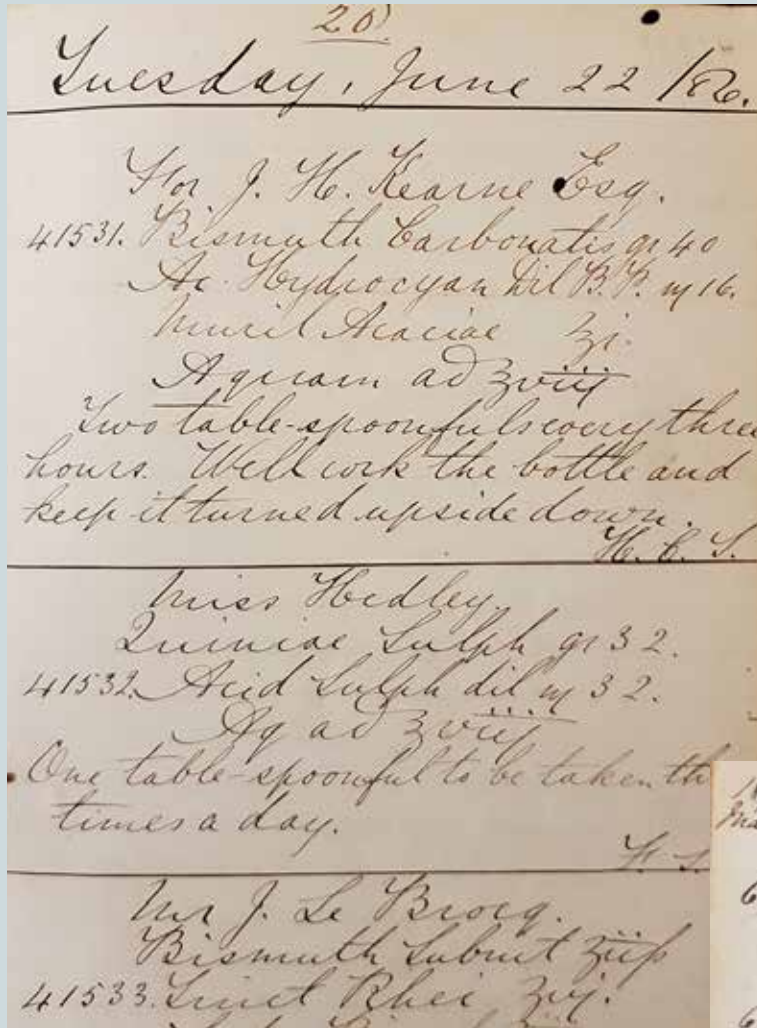 20
Tuesday, June 22 /86.
For J. H. Kearne Esq.
41531. Bismuth Carbonatis gr 40
Ac. Hydrocyan Dil B.P. ɱ 16.
Mucil Acaciae ℥j.
Aquam ad ℥viij
Two table-spoonfuls every three
hours. Well cork the bottle and
keep it turned upside down.
H. C. S.
Miss Hedley.
Quiniae Sulph gr 32.
41532. Acid Sulph dil ɱ 32.
Aq ad ℥viij
One table-spoonful to be taken
times a day.
Mr J. Le Brocq.
Bismuth Subnit
41533. Tinct Rhei